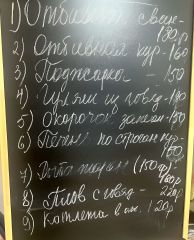 1) Отбивная свин-
180 р.
2) Отбивная кур- 160
3) Поджарка - 150
4) Гуляш из говяд- 180
5) Окорочок запечен- 150
6) Печень по строган
7) Рыба жарен (150 гр)
160р
8) Плов с говяд-
220р
9) Котлета в ах. 120р